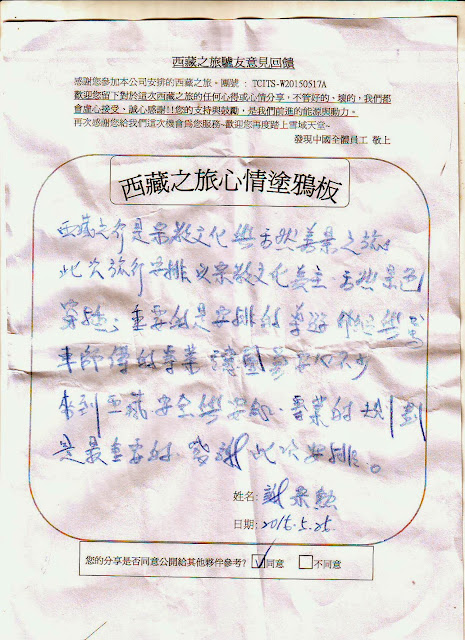 西藏之旅驢友意見回饋
感謝您參加本公司安排的西藏之旅。團號 : TCITS-W20150517A
歡迎您留下對於這次西藏之旅的任何心得或心情分享，不管好的、壞的，我們都
會虛心接受、誠心感謝!!您的支持與鼓勵，是我們前進的能源與動力。
再次感謝您給我們這次機會為您服務~歡迎您再度踏上雪域天堂~
發現中國全體員工 敬上
西藏之旅心情塗鴉板
西藏之行是宗教文化與自然美景之旅。
此次旅行安排以宗教文化為主，自然景色
重要的是安排的導遊
車師傅的專業
來到西藏安全與安 、專業的規劃
是最重要的，感謝此次安排。
姓名: 謝
日期: 2015.5.25
您的分享是否同意公開給其他夥伴參考? 同意 不同意